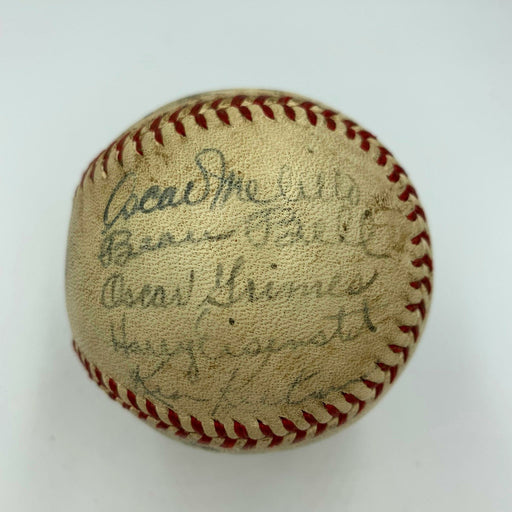 Oscar Melillo
Beau Bell
Oscar Grimes
Harry Eisenstat
Ken Keltner